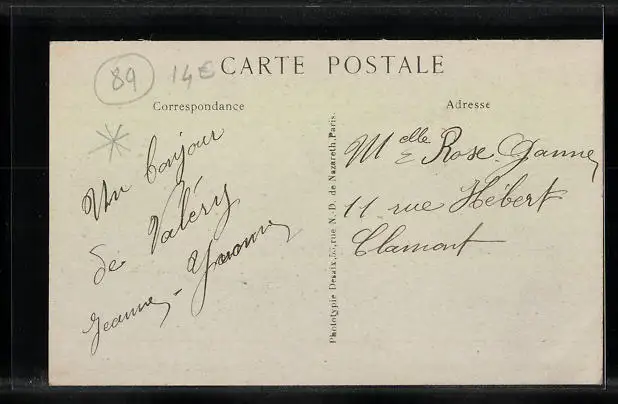 89 14€
CARTE POSTALE
Correspondance
Un bonjour
de Valéry
Jeanne - Yvonne
Phototypie Desaix, rue N.-D. de Nazareth, Paris.
Adresse
Melle Rose Ganne
11 rue Hébert
Clamart